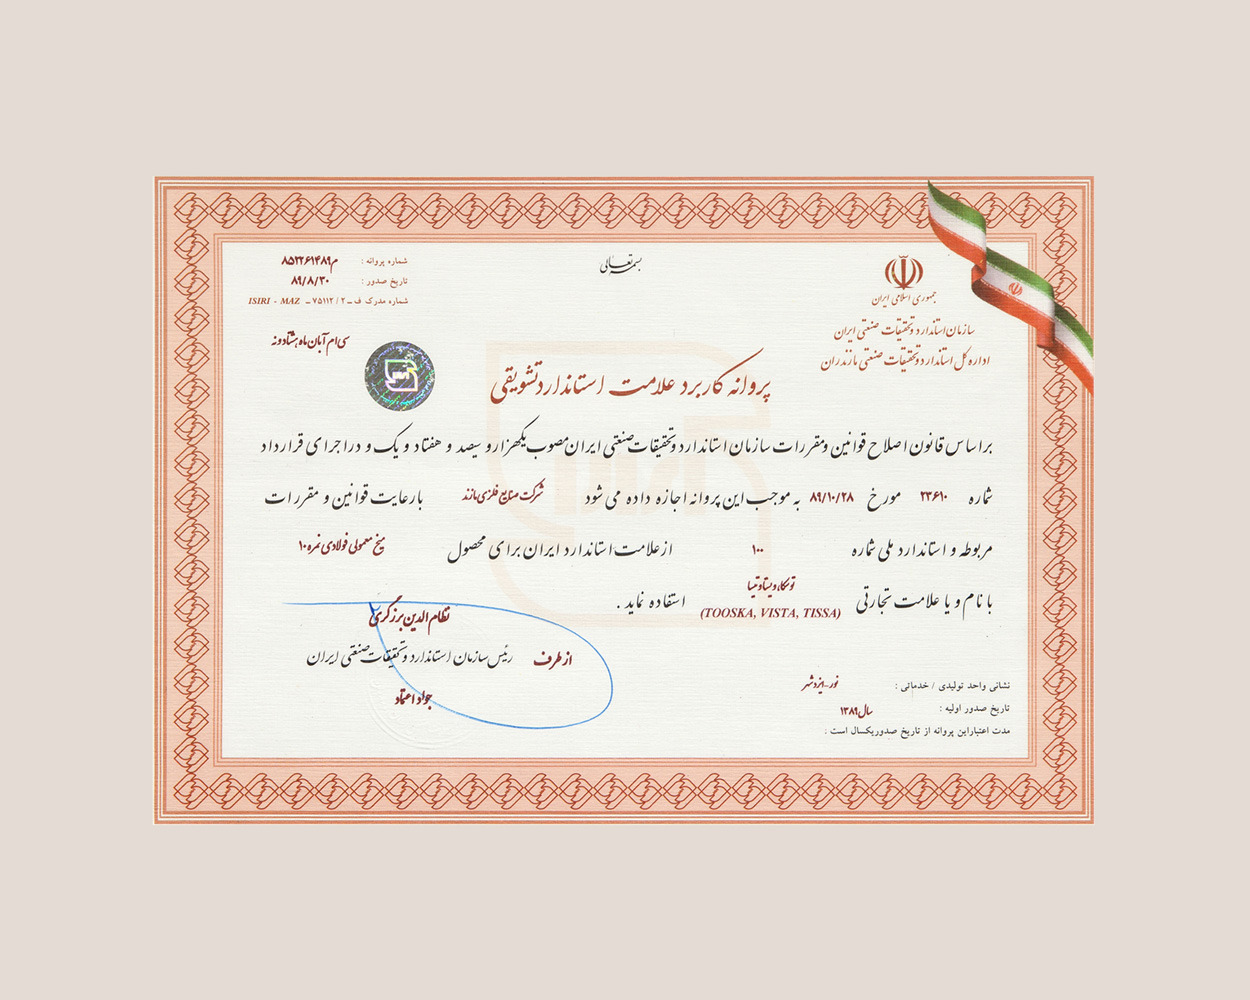 بسمه تعالی
جمهوری اسلامی ایران
سازمان استاندارد و تحقیقات صنعتی ایران
اداره کل استاندارد و تحقیقات صنعتی مازندران
شماره پروانه : م ۸۵۲۲۶۱۴۸۹
تاریخ صدور : ۸۹/۸/۳۰
شماره مدرک ف – ۲ / ۷۵۱۱۲ – ISIRI - MAZ
سی ام آبان ماه هشتاد و نه
پروانه کاربرد علامت استاندارد تشویقی
بر اساس قانون اصلاح قوانین و مقررات سازمان استاندارد و تحقیقات صنعتی ایران مصوب یکهزار و سیصد و هفتاد و یک و در اجرای قرارداد
شماره ۲۳۶۱۰ مورخ ۸۹/۱۰/۲۸ به موجب این پروانه اجازه داده می شود شرکت صنایع فلزی مازند با رعایت قوانین و مقررات
مربوطه و استاندارد ملی شماره ۱۰۰ از علامت استاندارد ایران برای محصول میخ معمولی فولادی نمره ۱۰
با نام و یا علامت تجارتی توسکا و ویستا و تیسا (TOOSKA, VISTA, TISSA) استفاده نماید .
نظام الدین برزگری
از طرف رئیس سازمان استاندارد و تحقیقات صنعتی ایران
جواد اعتماد
نشانی واحد تولیدی / خدماتی : نور-ایزدشهر
تاریخ صدور اولیه : سال ۱۳۸۹
مدت اعتبار این پروانه از تاریخ صدور یکسال است :